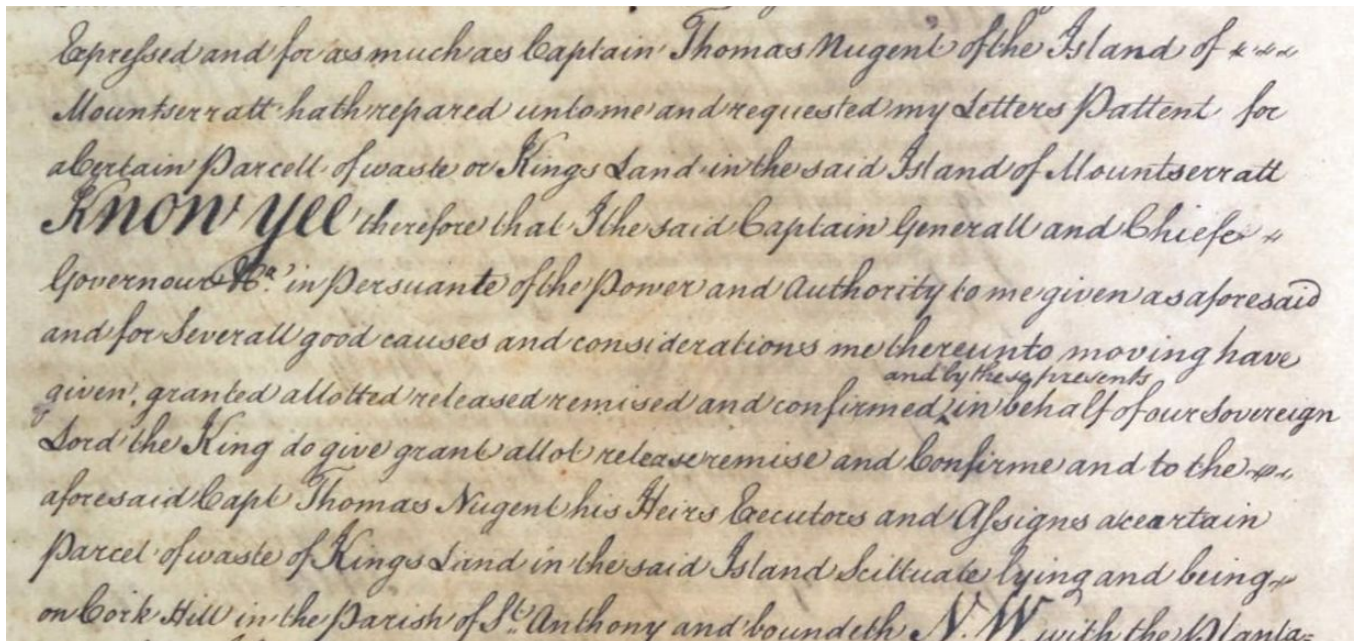 Expressed and for as much as Captain Thomas Nugent of the Island of
Mountserratt hath repared unto me and requested my Letters Pattent for
a Certain Parcell of waste or Kings Land in the said Island of Mountserratt
Know Yee therefore that I the said Captain Generall and Chiefe
Governour &ca. in Persuante of the Power and Authority to me given as aforesaid
and for Severall good causes and considerations me thereunto moving have
and by these presents
given, granted allotted released remised and confirmed ^ in behalf of our Sovereign
Lord the King do give grant allot release remise and Confirme and to the
aforesaid Capt Thomas Nugent his Heirs Executors and Assigns a ceartain
Parcel of waste of Kings Land in the said Island Scittuate lying and being
on Cork Hill in the Parish of St. Anthony and boundeth N. W with the Planta=